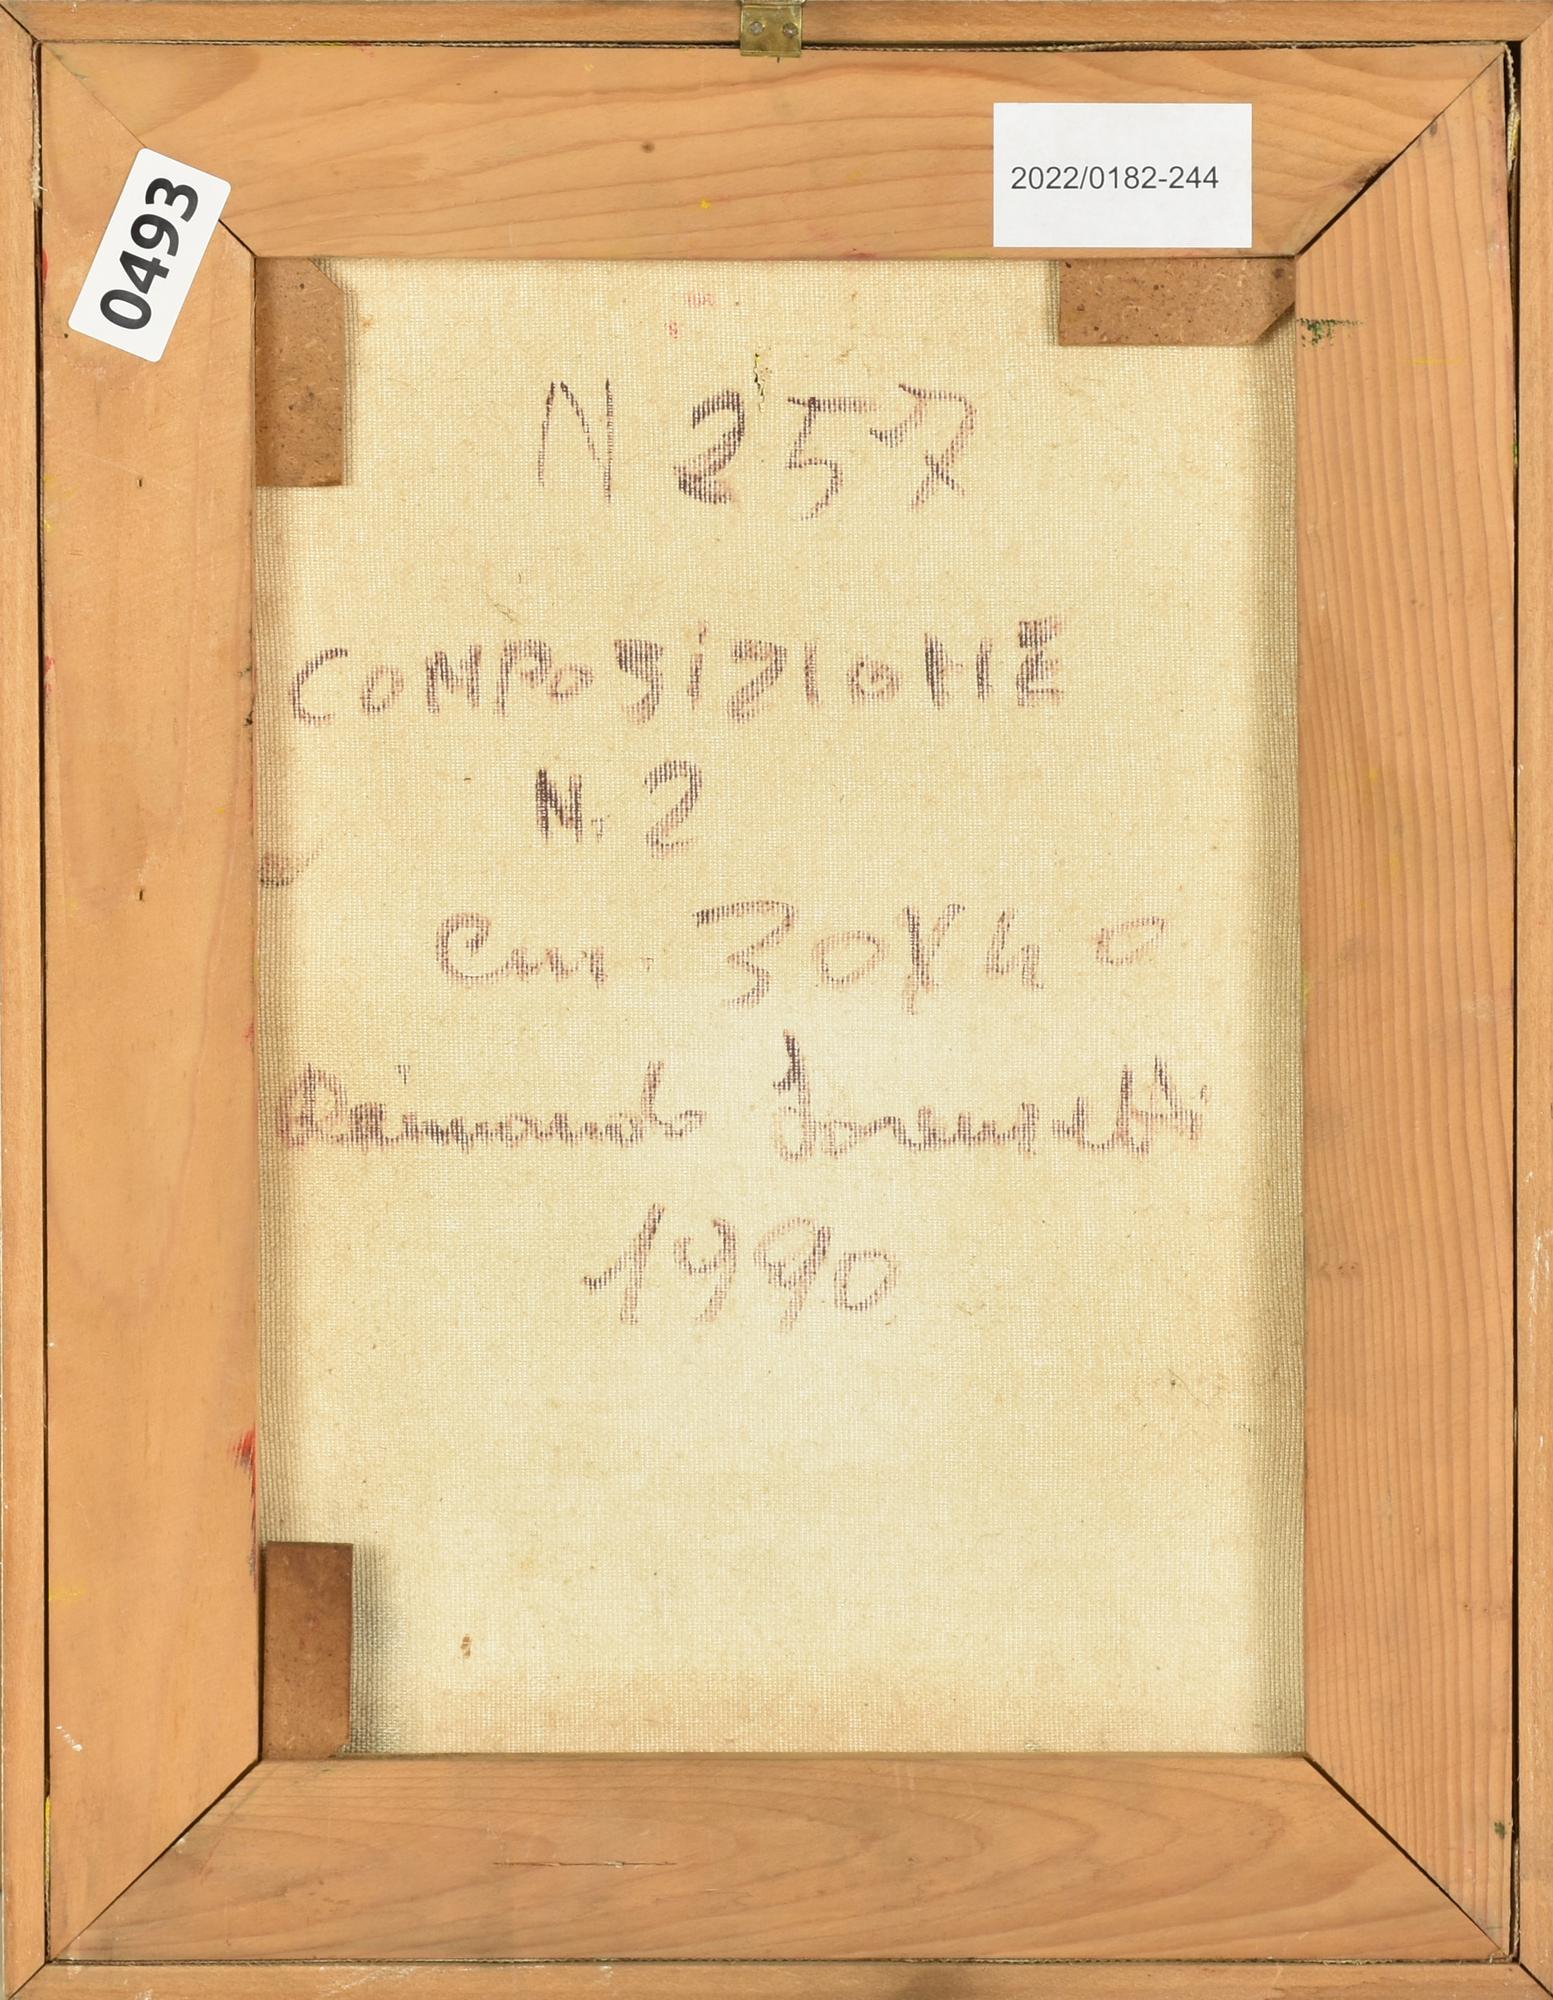 2022/0182-244
0493
N 257
COMPOSIZIONE
N. 2
Cm. 30X40
Raimondo
1990